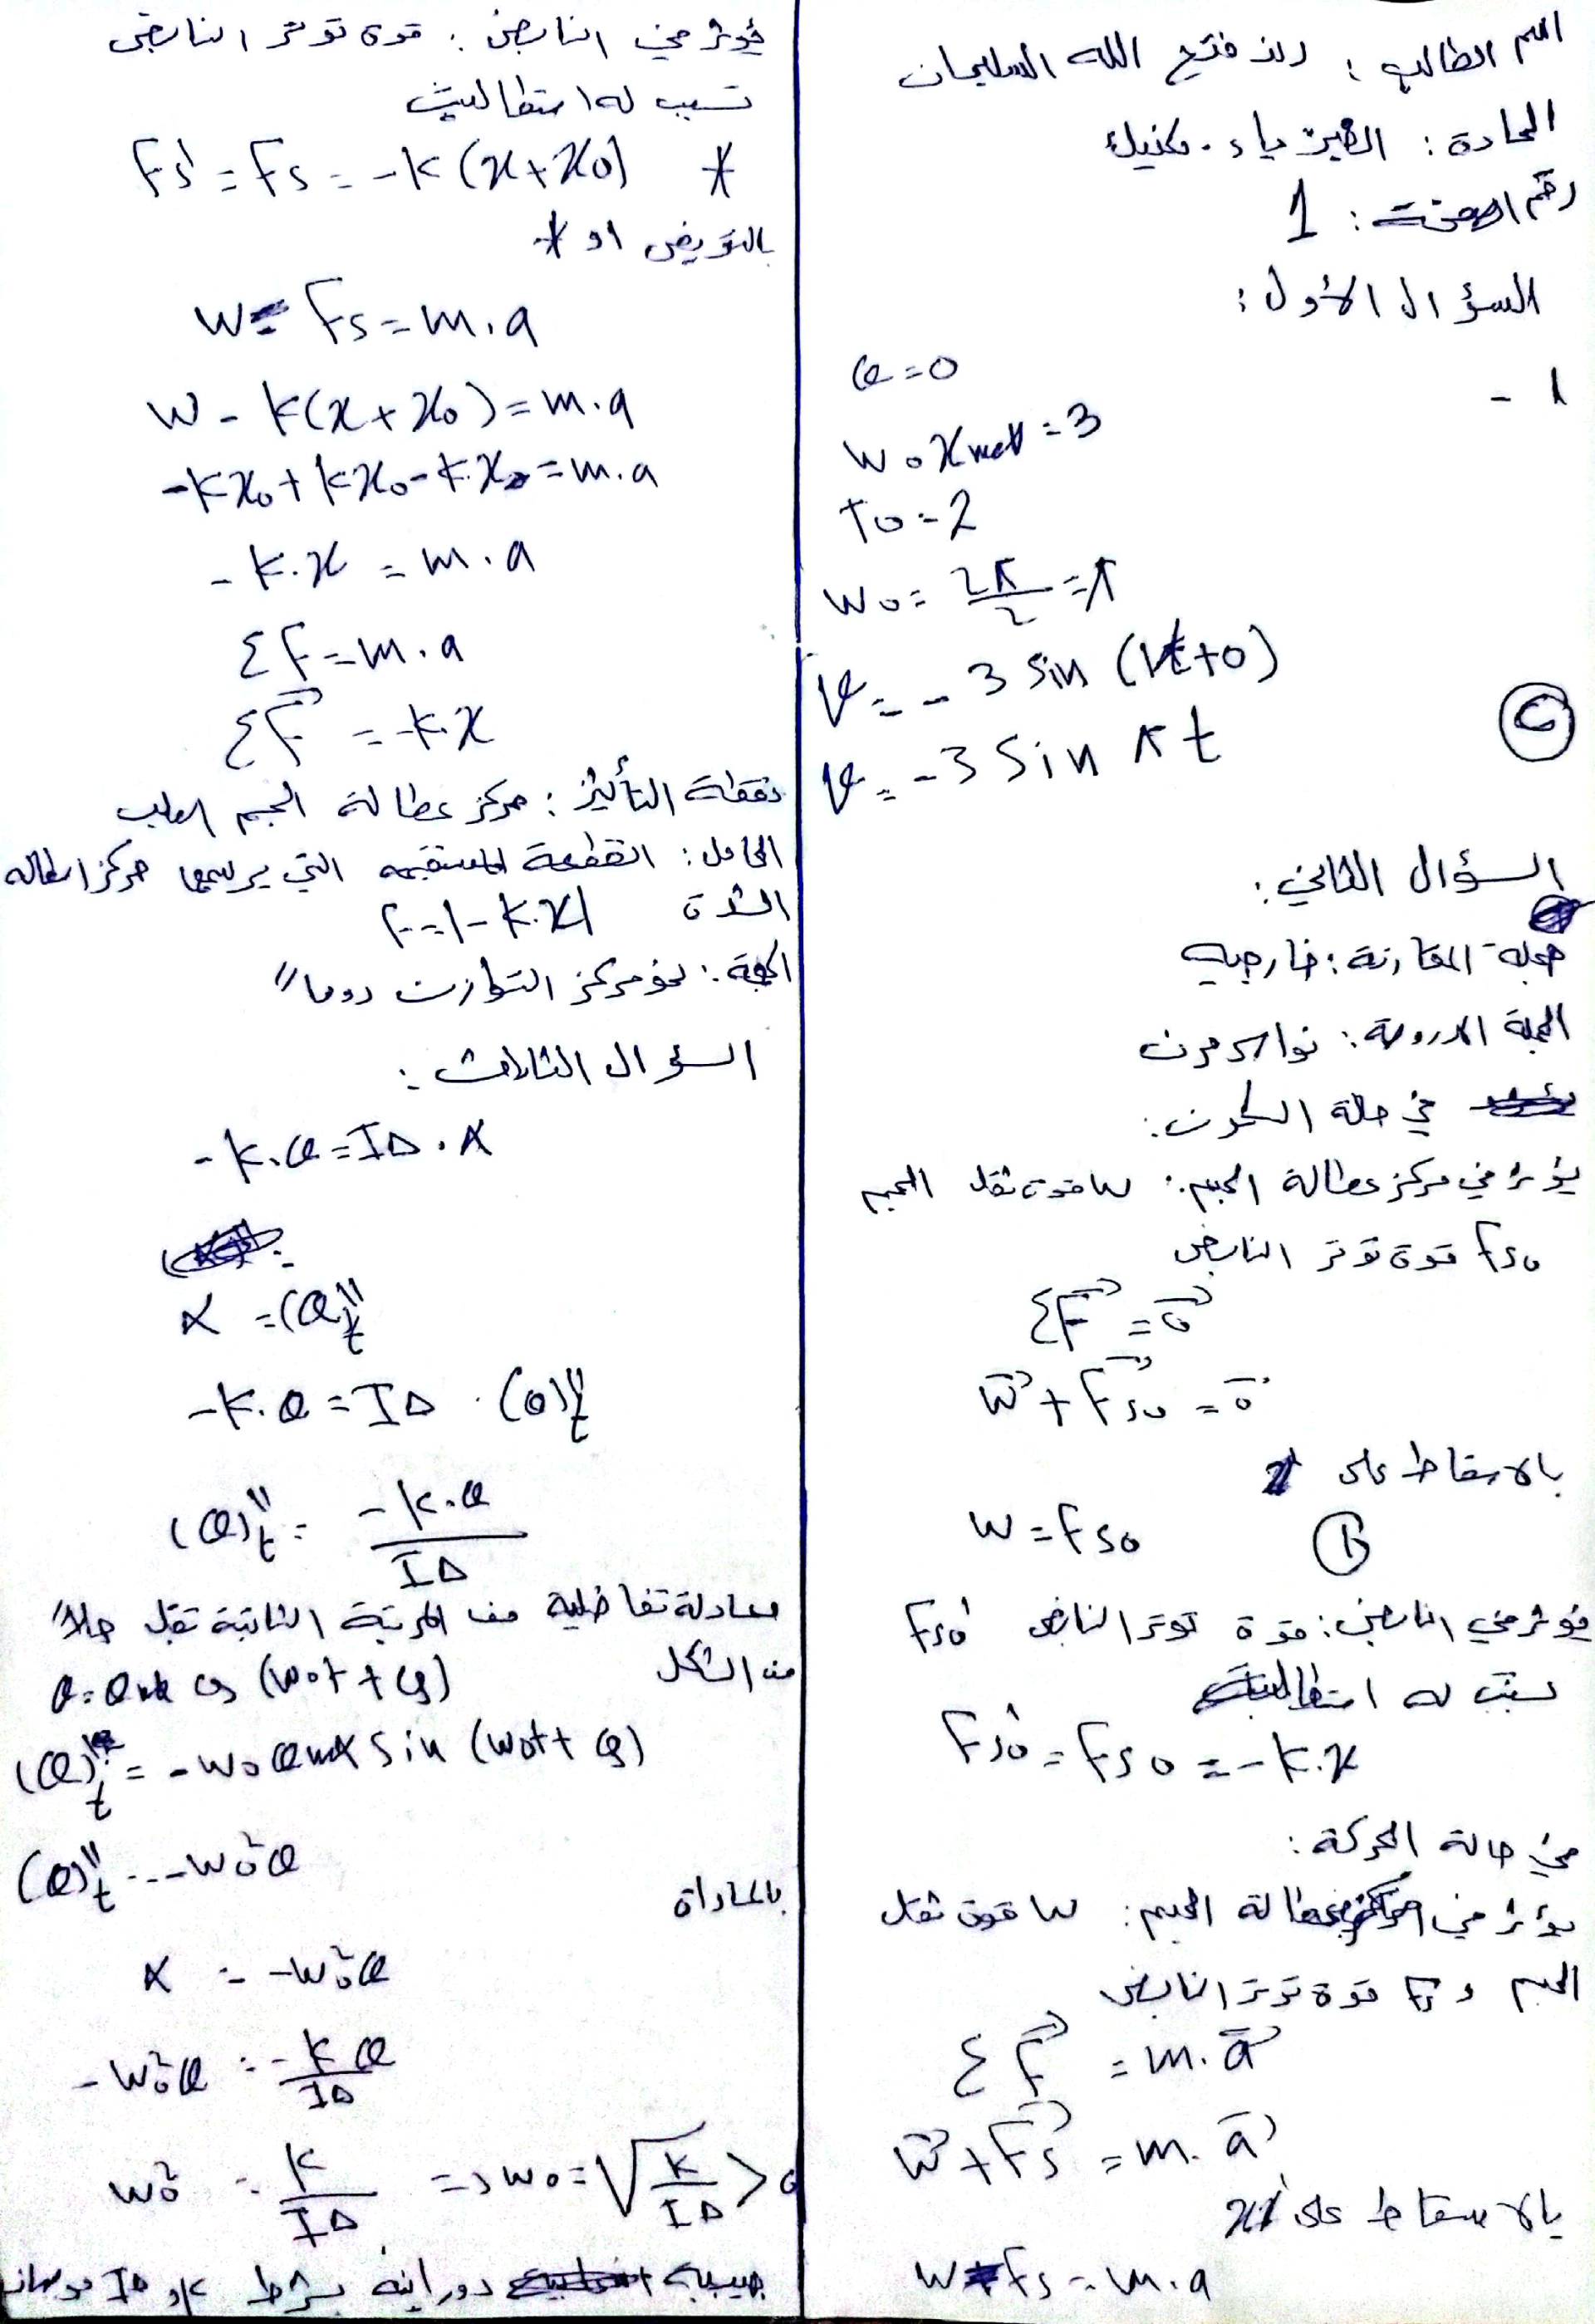 اسم الطالب : رند فتح الله السليمان
المادة : الفيزياء . مكنيك
رقم الصفحة : 1
السؤال الأول :
1 -
φ = 0
w0 Xmax = 3
T0 = 2
w0 = 2π/2 = π
v = - 3 sin (πt+0)
v = -3 sin π t
C
السؤال الثاني :
جملة المقارنة : خارجية
الجملة المدروسة : نواس مرن
في حالة السكون :
يؤثر في مركز عطالة الجسم : w قوة ثقل الجسم
Fs0 قوة توتر النابض
ΣF = 0
w + Fs0 = 0
بالاسقاط على
w = Fs0
فيؤثر في النابض : قوة توتر النابض Fs0'
تسبب له استطالة
Fs0' = Fs0 = -k.x
في حالة الحركة :
يؤثر في مركز عطالة الجسم : w قوة ثقل
الجسم و Fs قوة توتر النابض
ΣF = m.a
w + Fs = m.a
بالاسقاط على
w - Fs = m.a
فيؤثر في النابض : قوى توتر النابض
تسبب له استطالة
Fs' = Fs = -k (x+x0) *
بالتعويض *
w - Fs = m.a
w - k(x+x0) = m.a
-kx0 + kx0 - k.x = m.a
- k.x = m.a
ΣF = m.a
ΣF = -k.x
نقطة التأثير : مركز عطالة الجسم الصلب
الحامل : القطعة المستقيمة التي يرسمها مركز العطالة
الشدة F = |-k.x|
الجهة : نحو مركز التوازن دوما"
السؤال الثالث :
- k.θ = IΔ . α
α = (θ)''t
-k.θ = IΔ . (θ)''t
(θ)''t = -k.θ / IΔ
معادلة تفاضلية من المرتبة الثانية تقبل حلا"
من الشكل θ = θmax cos (w0t + φ)
(θ)'t = -w0 θmax sin (w0t + φ)
(θ)''t = -w0²θ
بالمساواة
α = -w0²θ
-w0²θ = -kθ / IΔ
w0² = k / IΔ => w0 = √(k / IΔ) > 0
جيبية دورانية بشرط k و IΔ موجبان